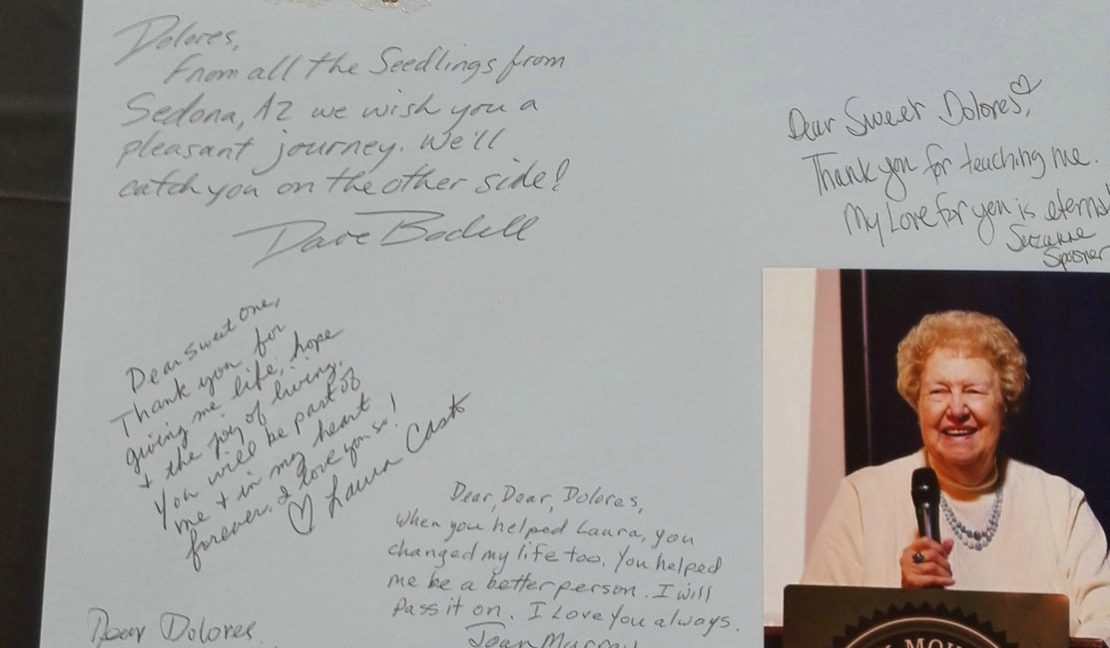 Dolores,
From all the Seedlings from
Sedona, AZ we wish you a
pleasant journey. We'll
catch you on the other side!
Dave Bodell
Dear Sweet Dolores,
Thank you for teaching me.
My Love for you is eternal
Suzanne
Spooner
Dear sweet one,
Thank you for
giving me life, hope
+ the joy of living.
You will be part of
me + in my heart
forever. I love you so!
♡ Laura Cast
Dear, Dear, Dolores,
When you helped Laura, you
changed my life too. You helped
me be a better person. I will
Pass it on. I Love You always.
Joan Murray
Dear Dolores
MOU